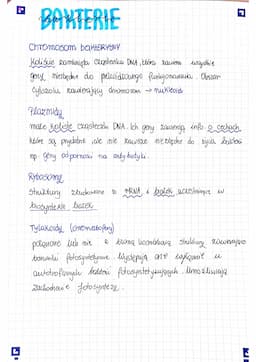 BAKTERIE
Chromosom bakteryjny
Koliście zamknięta cząsteczka DNA, która zawiera wszystkie
geny niezbędne do prawidłowego funkcjonowania. Obszar
cytozolu zawierający chromosom → nukleoid
Plazmidy
małe koliste cząsteczki DNA. Ich geny zawierają info. o cechach,
które są przydatne ale nie zawsze niezbędne do życia bakterii
np. geny odporności na antybiotyki.
Rybosomy
struktury zbudowane z rRNA i białek uczestniczące w
biosyntezie białek
Tylakoidy (chromatofory)
połączone lub nie z błoną komórkową struktury zawierające
barwniki fotosyntetyczne. Występują one wyłącznie u
autotroficznych bakterii fotosyntetyzujących. Umożliwiają
zachodzenie fotosyntezy.